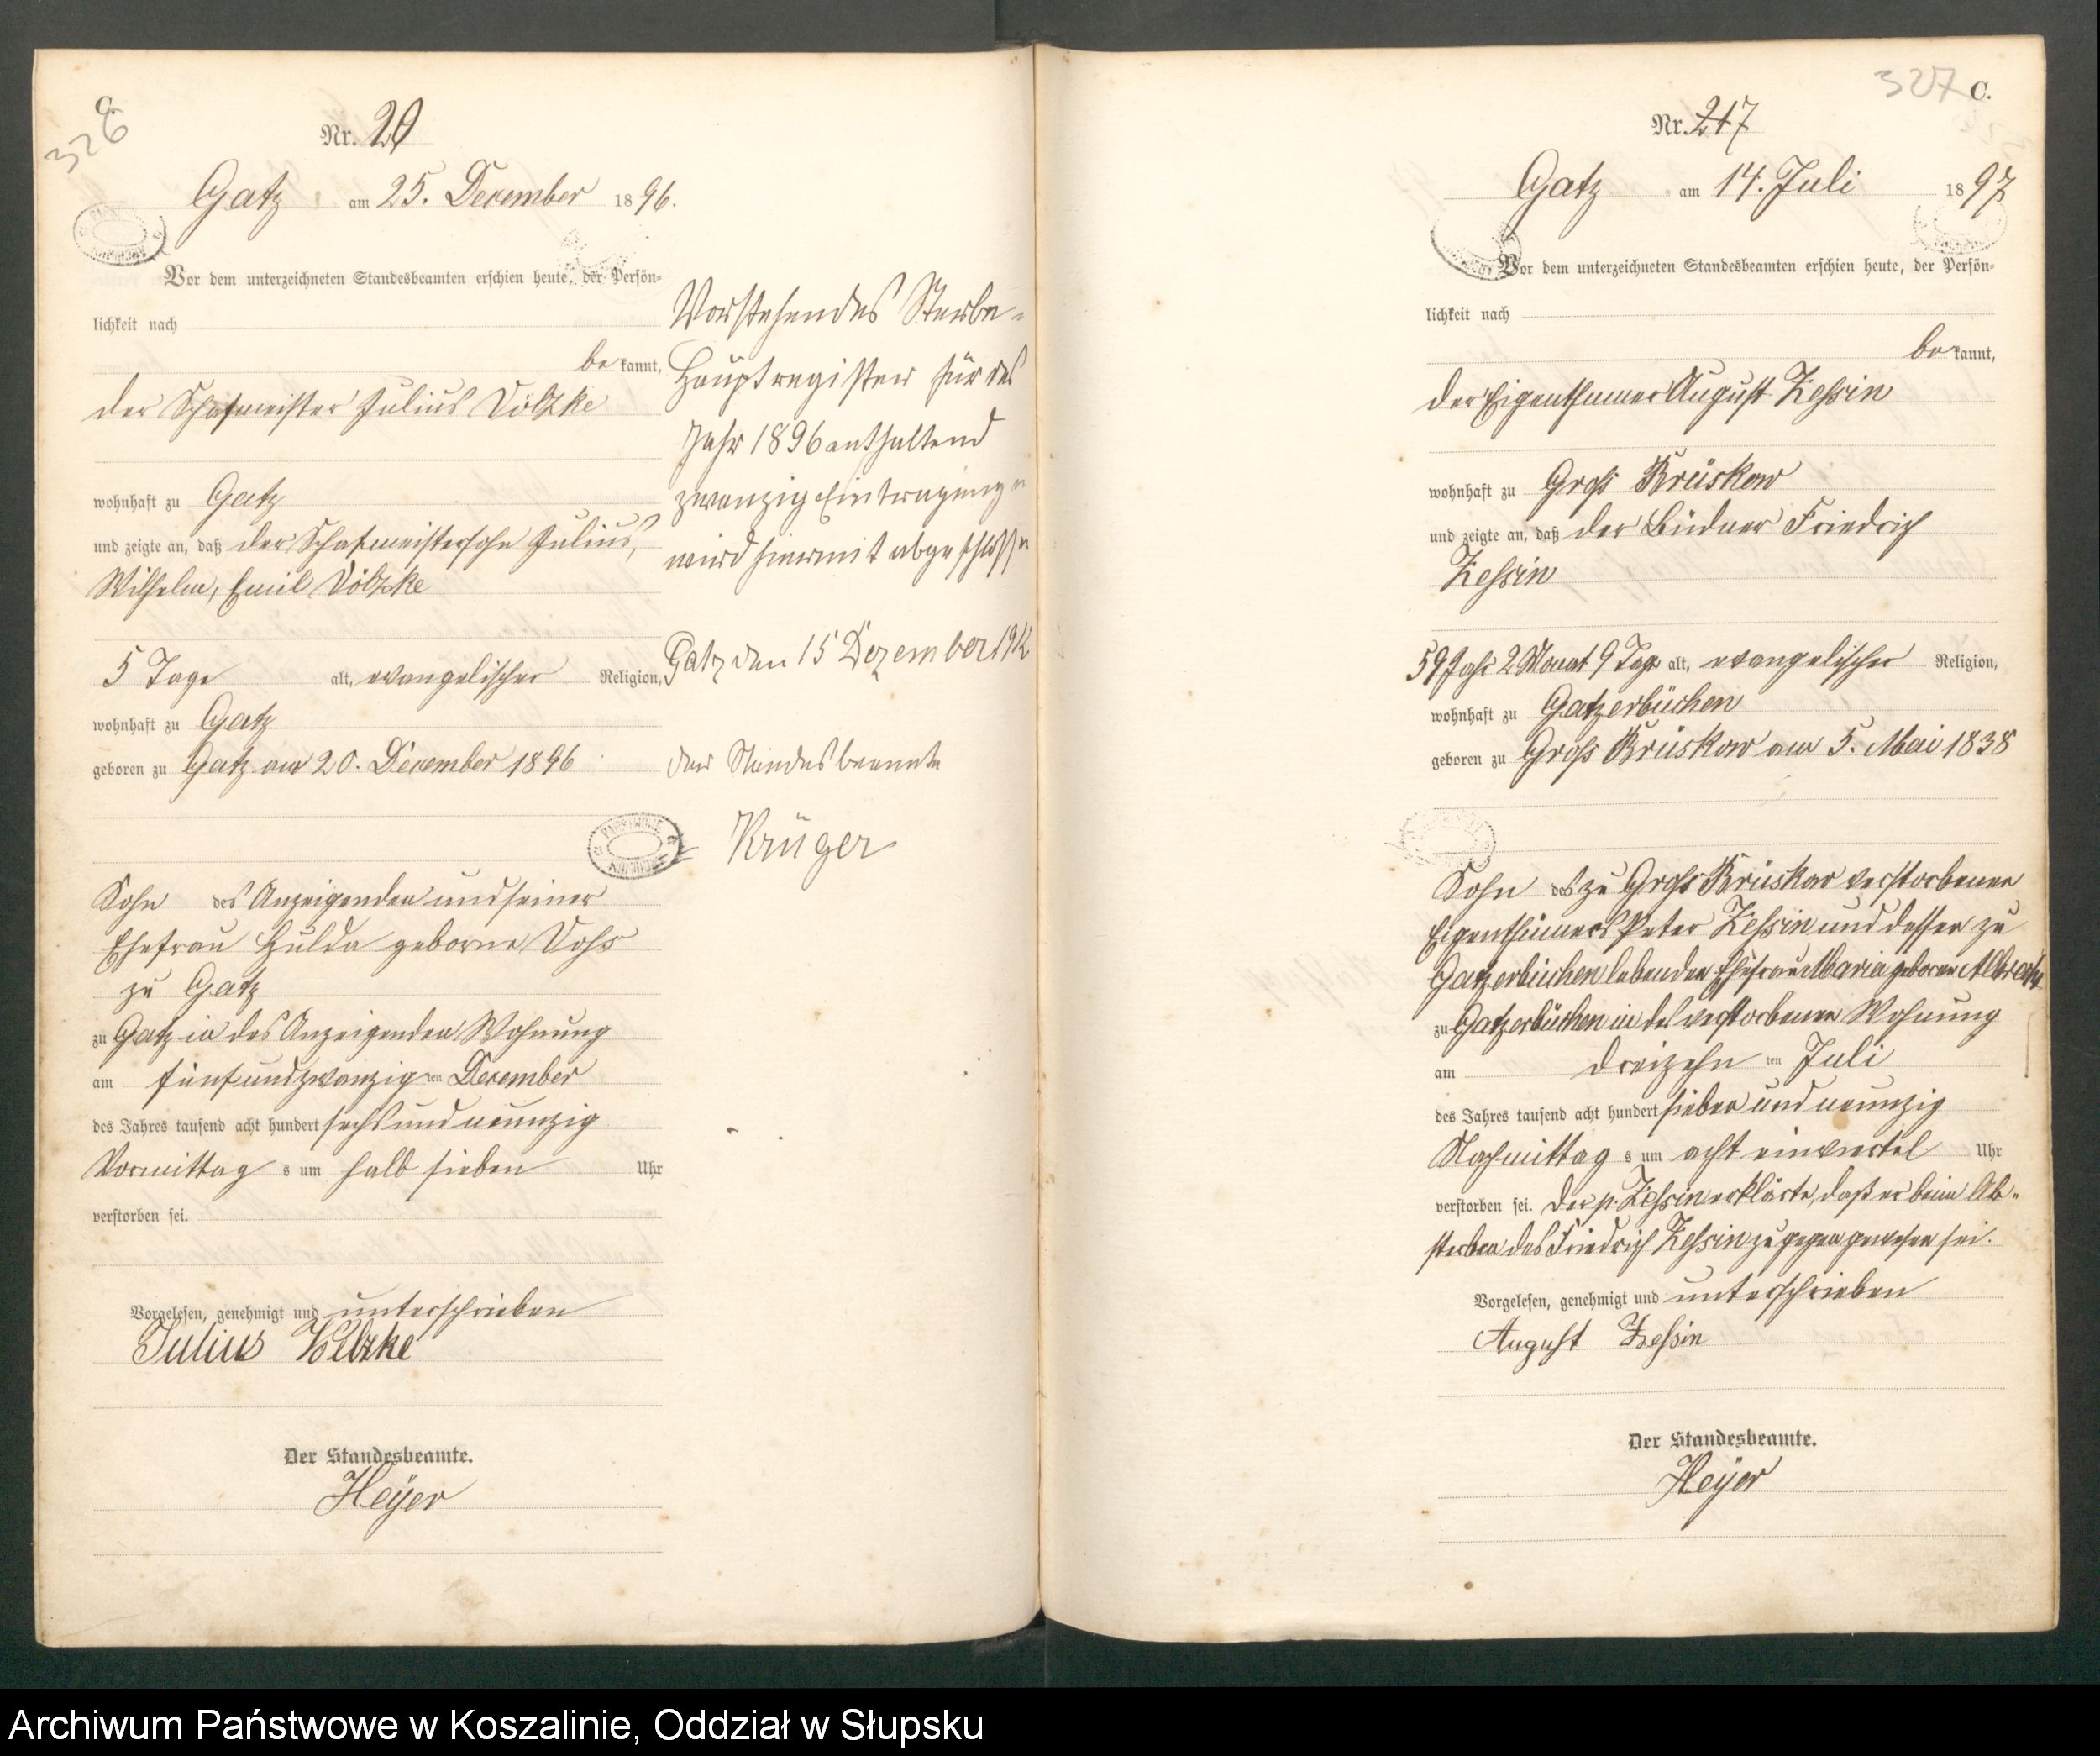 C.
326
Nr. 20
Gatz am 25. December 1896.
Vor dem unterzeichneten Standesbeamten erschien heute, der Persön-
lichkeit nach
be kannt,
der Schafmeister Julius Völzke
wohnhaft zu Gatz
und zeigte an, daß der Schafmeistersohn Julius,
Wilhelm, Emil Völzke
5 Tage alt, evangelischer Religion,
wohnhaft zu Gatz
geboren zu Gatz am 20. December 1896
Sohn des Anzeigenden und seiner
Ehefrau Hulda geborne Voss
zu Gatz
zu Gatz in des Anzeigenden Wohnung
am fünfundzwanzig ten December
des Jahres tausend acht hundert sechs und neunzig
Vormittag s um halb sieben Uhr
verstorben sei.
Vorgelesen, genehmigt und unterschrieben
Julius Völzke
Der Standesbeamte.
Heyer
Vorstehendes Sterbe-
Hauptregister für das
Jahr 1896 enthaltend
zwanzig Eintragungen
wird hiermit abgeschlossen
Gatz den 15 Dezember 1912
Der Standesbeamte
Krüger
327 C.
Nr. 17
Gatz am 14. Juli 1897
Vor dem unterzeichneten Standesbeamten erschien heute, der Persön-
lichkeit nach
be kannt,
der Eigenthümer August Zessin
wohnhaft zu Groß Brüskow
und zeigte an, daß der Büdner Friedrich
Zessin
59 Jahr 2 Monat 9 Tage alt, evangelischer Religion,
wohnhaft zu Gatzerbüchen
geboren zu Groß Brüskow am 5. Mai 1838
Sohn des zu Groß Brüskow verstorbenen
Eigenthümers Peter Zessin und dessen zu
Gatzerbüchen lebenden Ehefrau Maria geborene Albrecht
zu Gatzerbüchen in des verstorbenen Wohnung
am dreizehn ten Juli
des Jahres tausend acht hundert sieben und neunzig
Nachmittag s um acht einviertel Uhr
verstorben sei. Der p. Zessin erklärte, daß er beim Ab-
sterben des Friedrich Zessin zugegen gewesen sei.
Vorgelesen, genehmigt und unterschrieben
August Zessin
Der Standesbeamte.
Heyer
Archiwum Państwowe w Koszalinie, Oddział w Słupsku